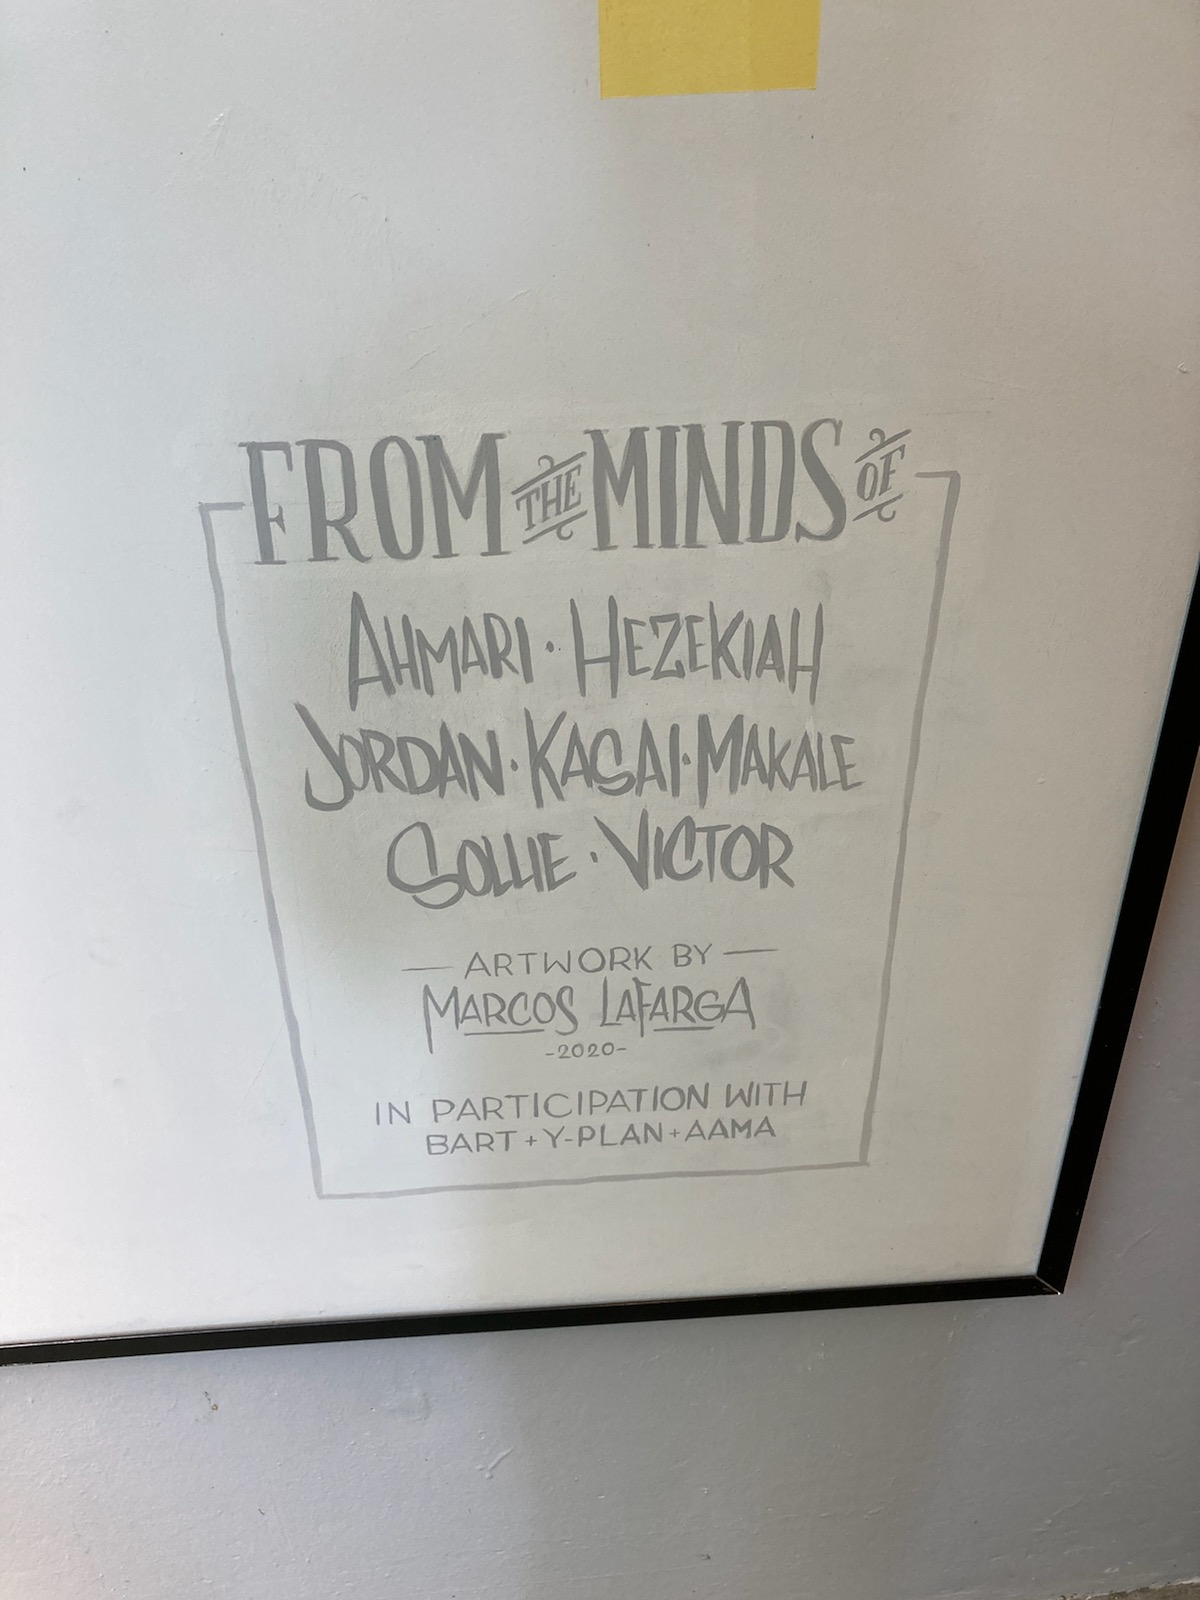 FROM THE MINDS OF
AHMARI · HEZEKIAH
JORDAN · KASAI · MAKALE
SOLLIE · VICTOR
— ARTWORK BY —
MARCOS LAFARGA
-2020-
IN PARTICIPATION WITH
BART + Y-PLAN + AAMA